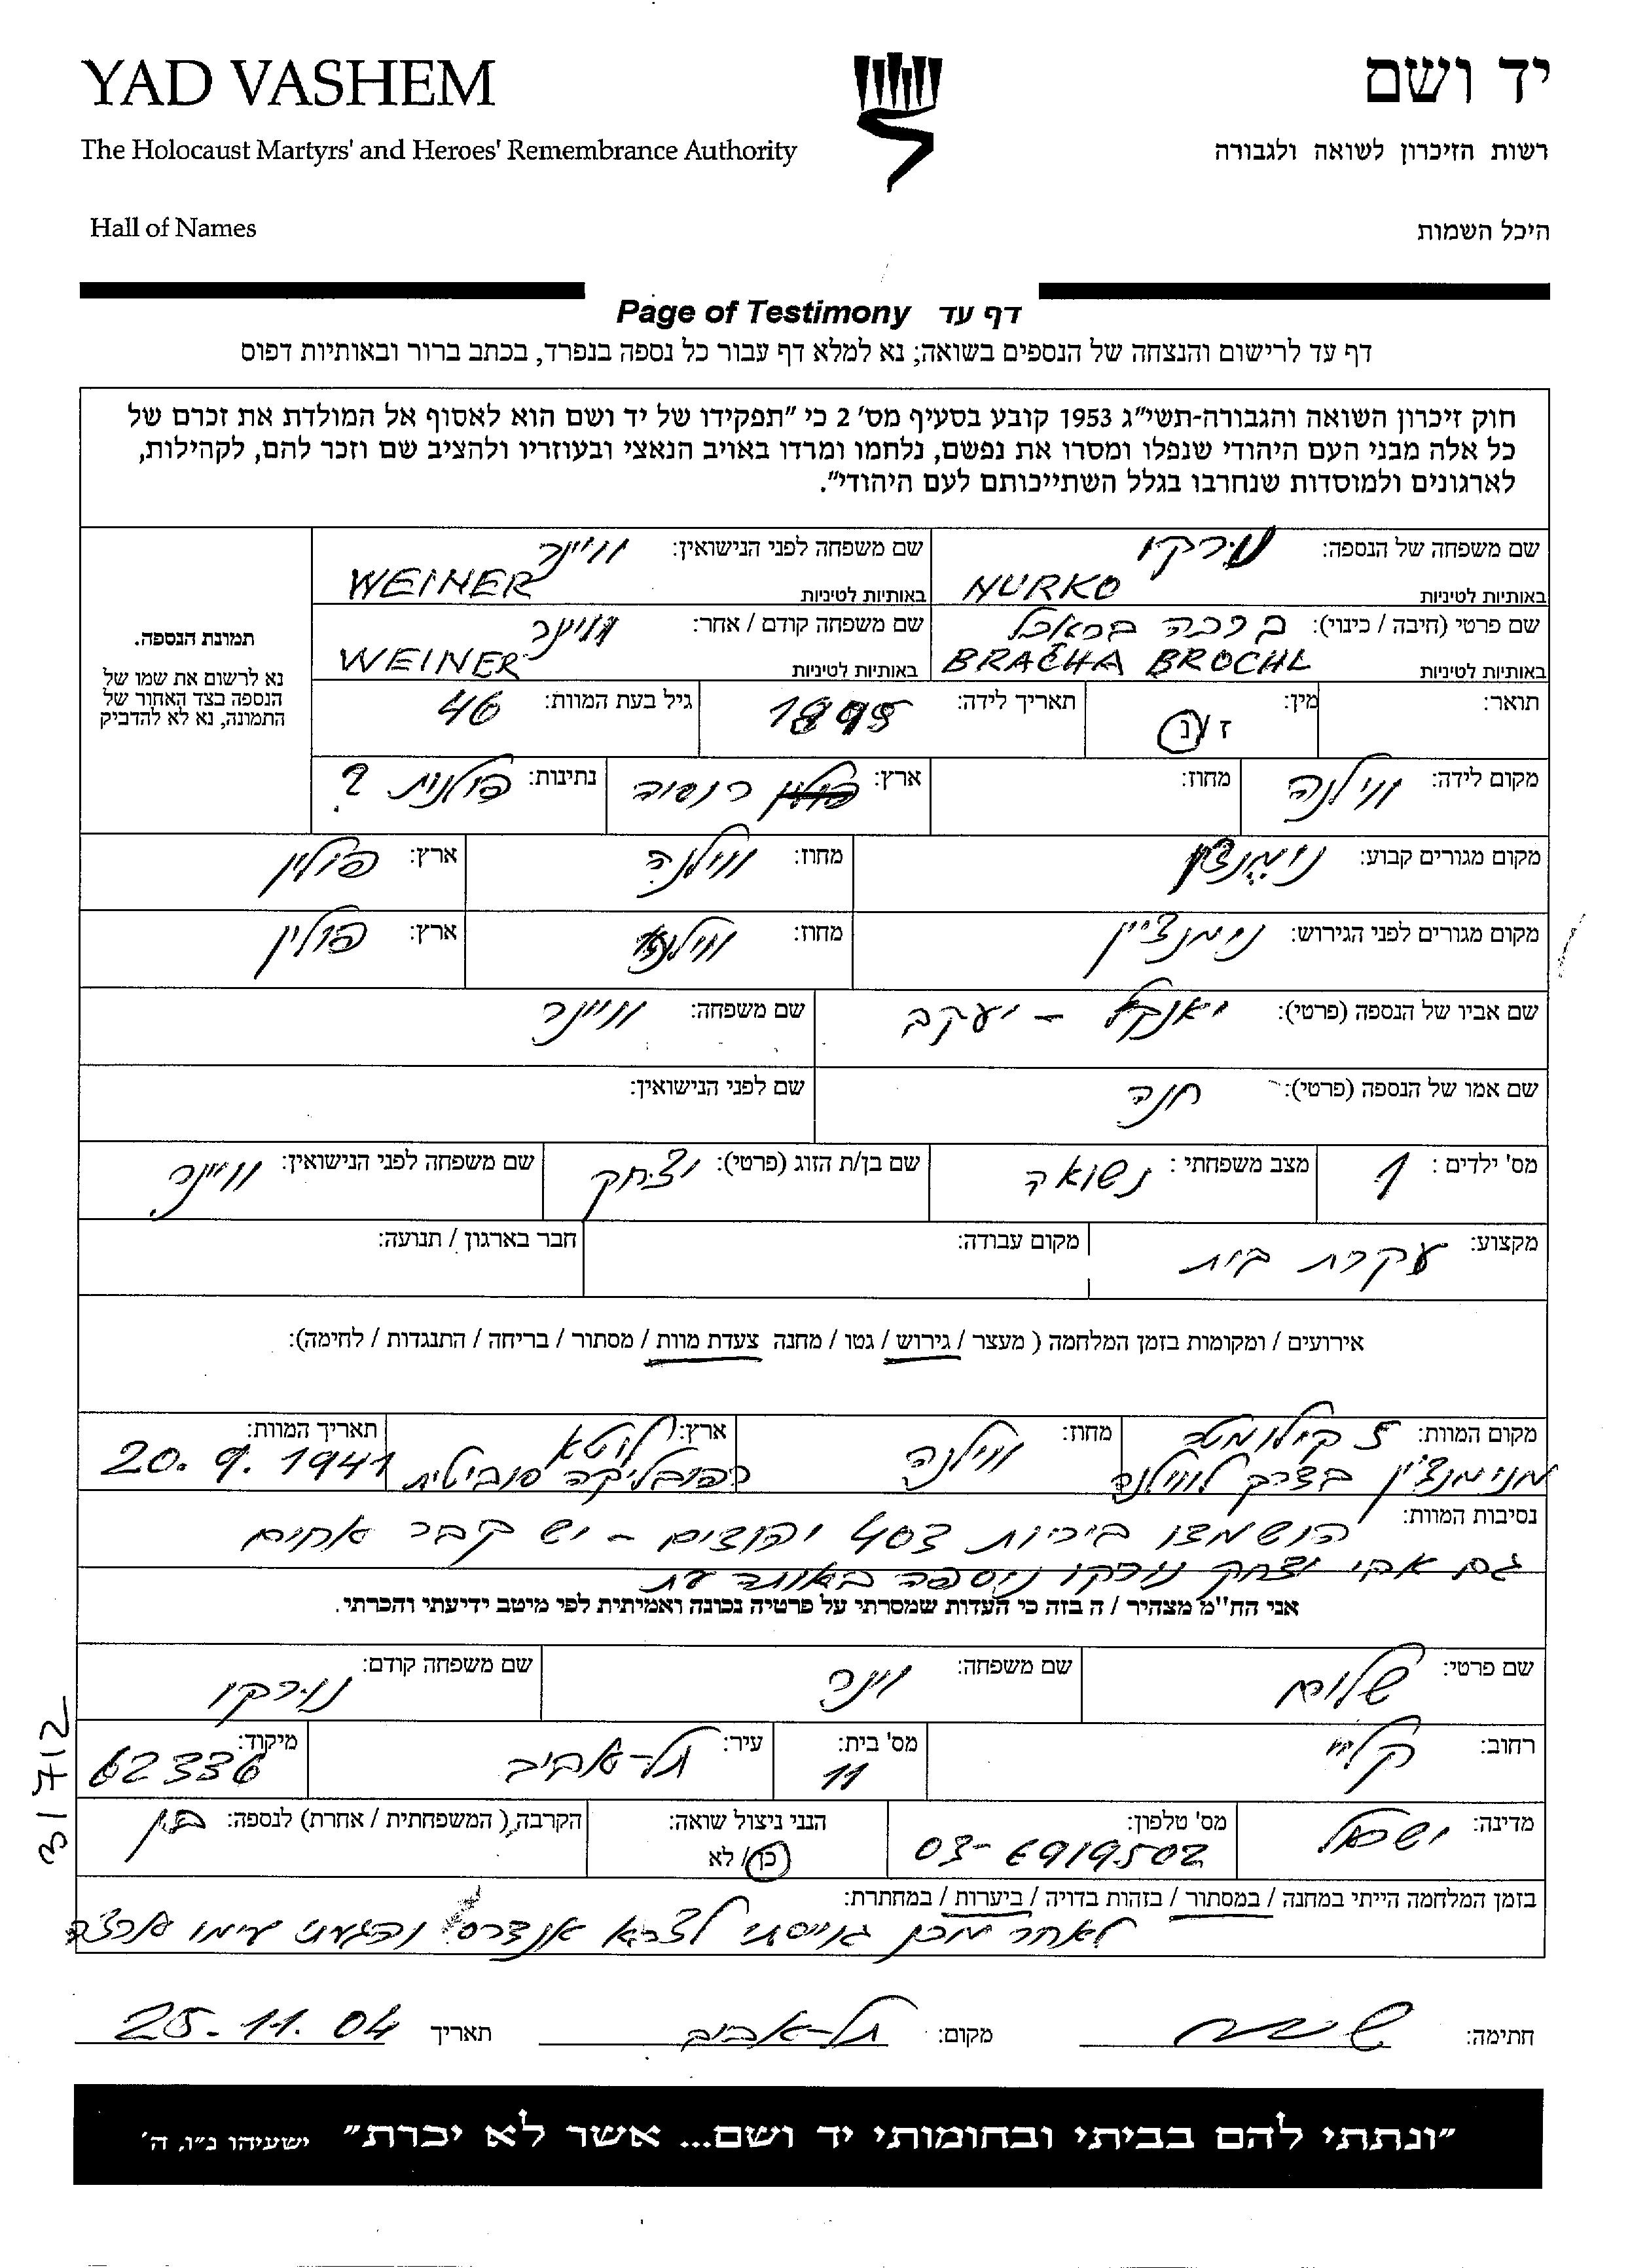 YAD VASHEM
יד ושם
The Holocaust Martyrs' and Heroes' Remembrance Authority
רשות הזיכרון לשואה ולגבורה
Hall of Names
היכל השמות
Page of Testimony דף עד
דף עד לרישום והנצחה של הנספים בשואה; נא למלא דף עבור כל נספה בנפרד, בכתב ברור ובאותיות דפוס
חוק זיכרון השואה והגבורה-תשי״ג 1953 קובע בסעיף מס׳ 2 כי ״תפקידו של יד ושם הוא לאסוף אל המולדת את זכרם של
כל אלה מבני העם היהודי שנפלו ומסרו את נפשם, נלחמו ומרדו באויב הנאצי ובעוזריו ולהציב שם וזכר להם, לקהילות,
לארגונים ולמוסדות שנחרבו בגלל השתייכותם לעם היהודי״.
שם משפחה של הנספה: נורקו שם משפחה לפני הנישואין: וויינר
באותיות לטיניות NURKO באותיות לטיניות WEINER
שם פרטי (חיבה / כינוי): ברכה בראכל שם משפחה קודם / אחר: וויינר
באותיות לטיניות BRACHA BROCHL באותיות לטיניות WEINER
תמונת הנספה.
נא לרשום את שמו של
הנספה בצד האחור של
התמונה, נא לא להדביק
תואר: מין: ז / נ תאריך לידה: 1895 גיל בעת המוות: 46
מקום לידה: ווילנה מחוז: ארץ: פולין רוסיה נתינות: פולנית ?
מקום מגורים קבוע: נימנצ'ין מחוז: ווילנה ארץ: פולין
מקום מגורים לפני הגירוש: נימנצ'ין מחוז: ווילנה ארץ: פולין
שם אביו של הנספה (פרטי): יאנקל - יעקב שם משפחה: וויינר
שם אמו של הנספה (פרטי): חנה שם לפני הנישואין:
מס' ילדים : 1 מצב משפחתי : נשואה שם בן/ת הזוג (פרטי): יצחק שם משפחה לפני הנישואין: וויינר
מקצוע: עקרת בית מקום עבודה: חבר בארגון / תנועה:
אירועים / ומקומות בזמן המלחמה ( מעצר / גירוש / גטו / מחנה צעדת מוות / מסתור / בריחה / התנגדות / לחימה):
מקום המוות: 5 קילומטר מחוז: ווילנה ארץ: ליטא תאריך המוות: 20.9.1941
מנימנצ'ין בדרך לווילנה רפובליקה סוביטית
נסיבות המוות: הושמדו ביריות 403 יהודים - יש קבר אחים
גם אבי יצחק נורקו ניספה באותה עת
אני הח"מ מצהיר / ה בזה כי העדות שמסרתי על פרטיה נכונה ואמיתית לפי מיטב ידיעתי והכרתי.
שם פרטי: שלום שם משפחה: וינר שם משפחה קודם: נורקו
רחוב: קליי מס' בית: 11 עיר: תל-אביב מיקוד: 62336
מדינה: ישראל מס' טלפון: 03-6919502 הנני ניצול שואה: כן / לא הקרבה ( המשפחתית / אחרת) לנספה: בן
בזמן המלחמה הייתי במחנה / במסתור / בזהות בדויה / ביערות / במחתרת:
לאחר מכן גוייסתי לצבא אנדרס והגעתי עימו ארצה
31712
חתימה: מקום: תל-אביב תאריך 25.11.04
״ונתתי להם בביתי ובחומותי יד ושם... אשר לא יכרת״ ישעיהו נ״ו, ה׳